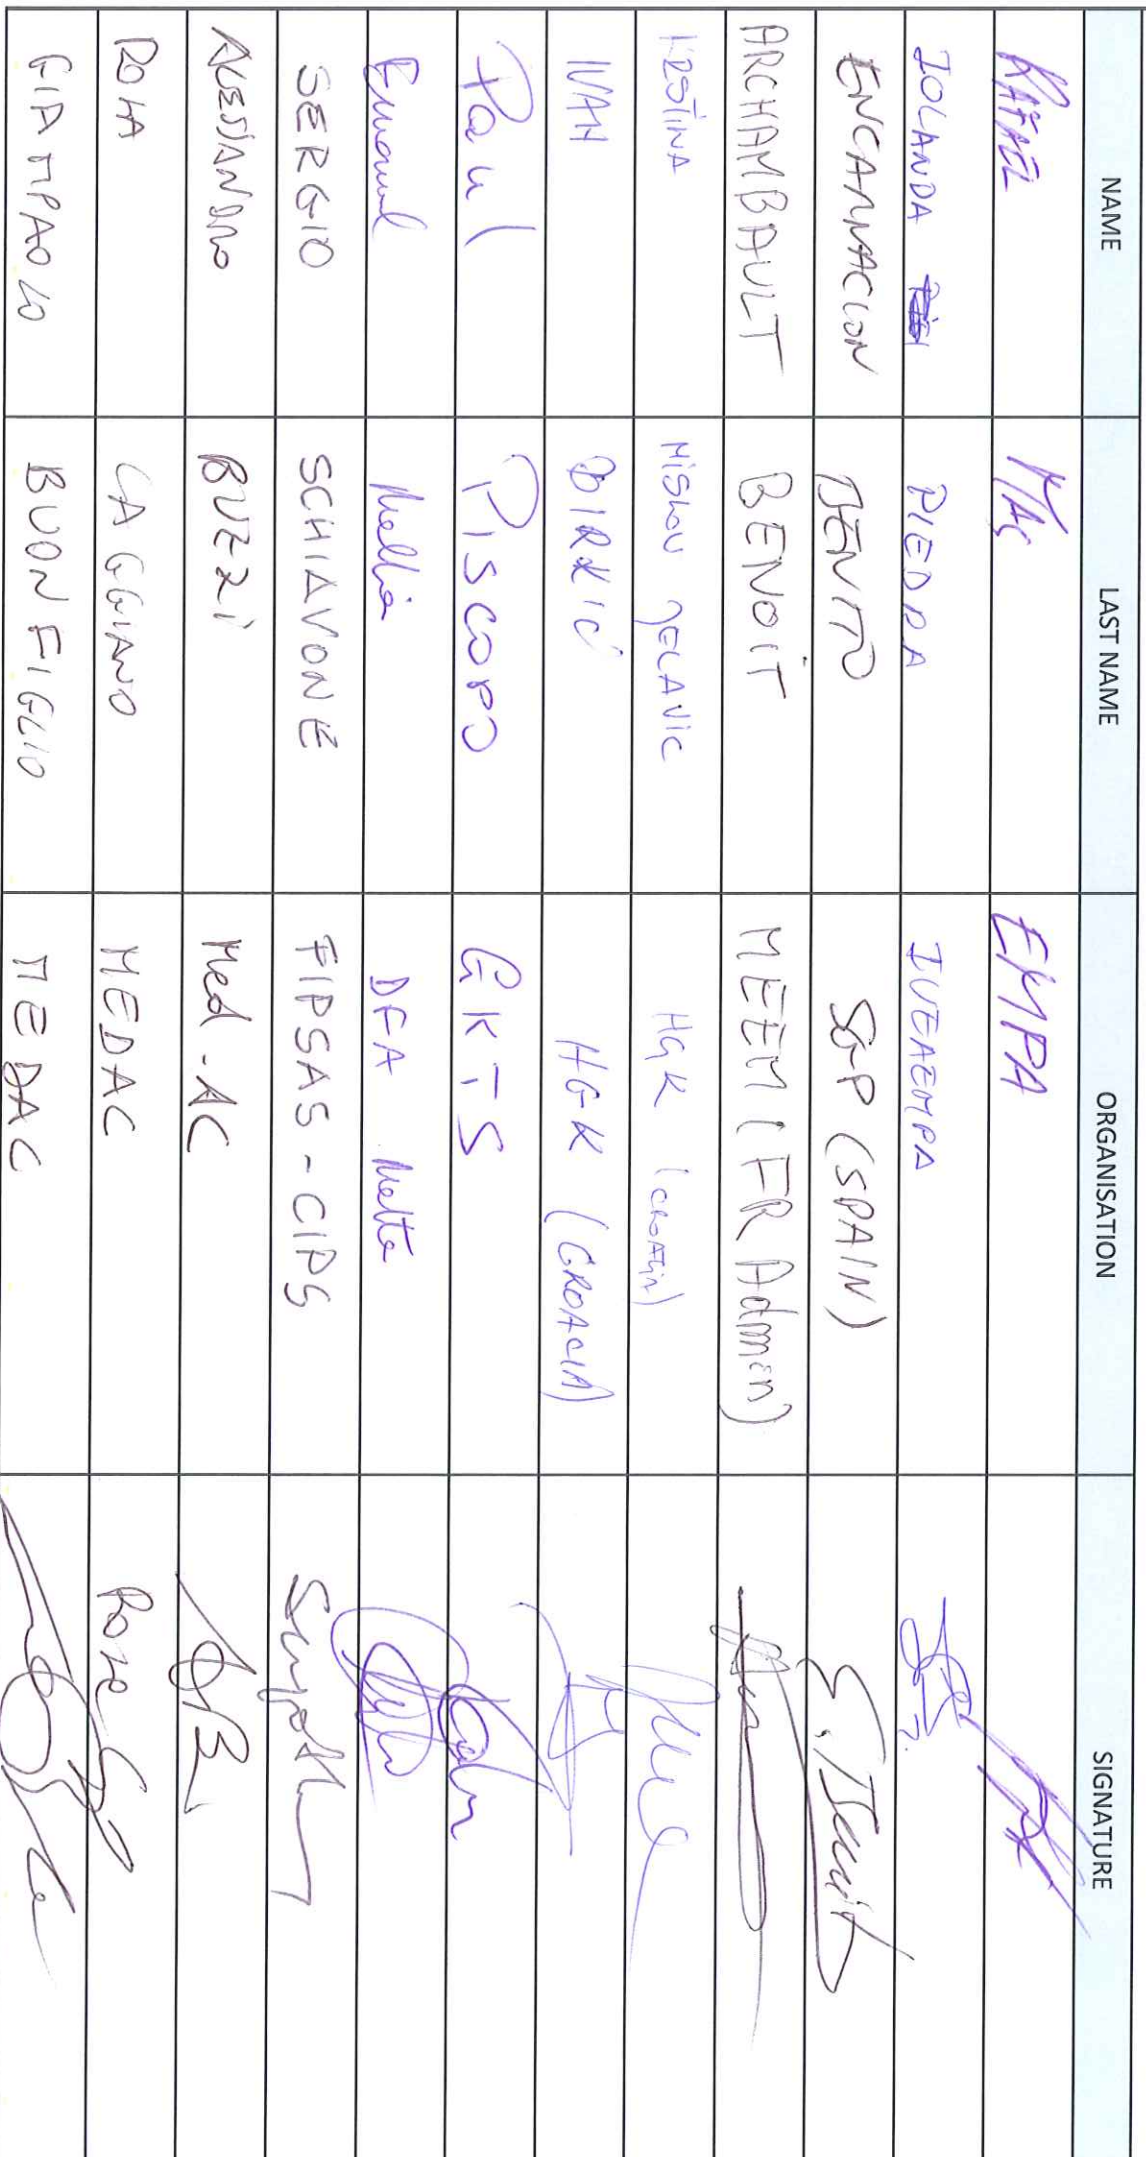 NAME LAST NAME ORGANISATION SIGNATURE
RAFAEL MAS EMPA
IOLANDA PIEDRA IVEAEMPA
ENCARNACION BENITO SGP (SPAIN)
ARCHAMBAULT BENOIT MEEM (FR Admin)
KRISTINA MISLOV JELAVIC HGK (CROATIA)
IVAN BIRKIĆ HGK (CROACIA)
Paul PISCOPO GKTS
Emanuel Mallia DFA Malta
SERGIO SCHIAVONE FIPSAS-CIPS
ALESSANDRO BUZZI Med-AC
ROSA CAGGIANO MEDAC
GIAMPAOLO BUONFIGLIO MEDAC